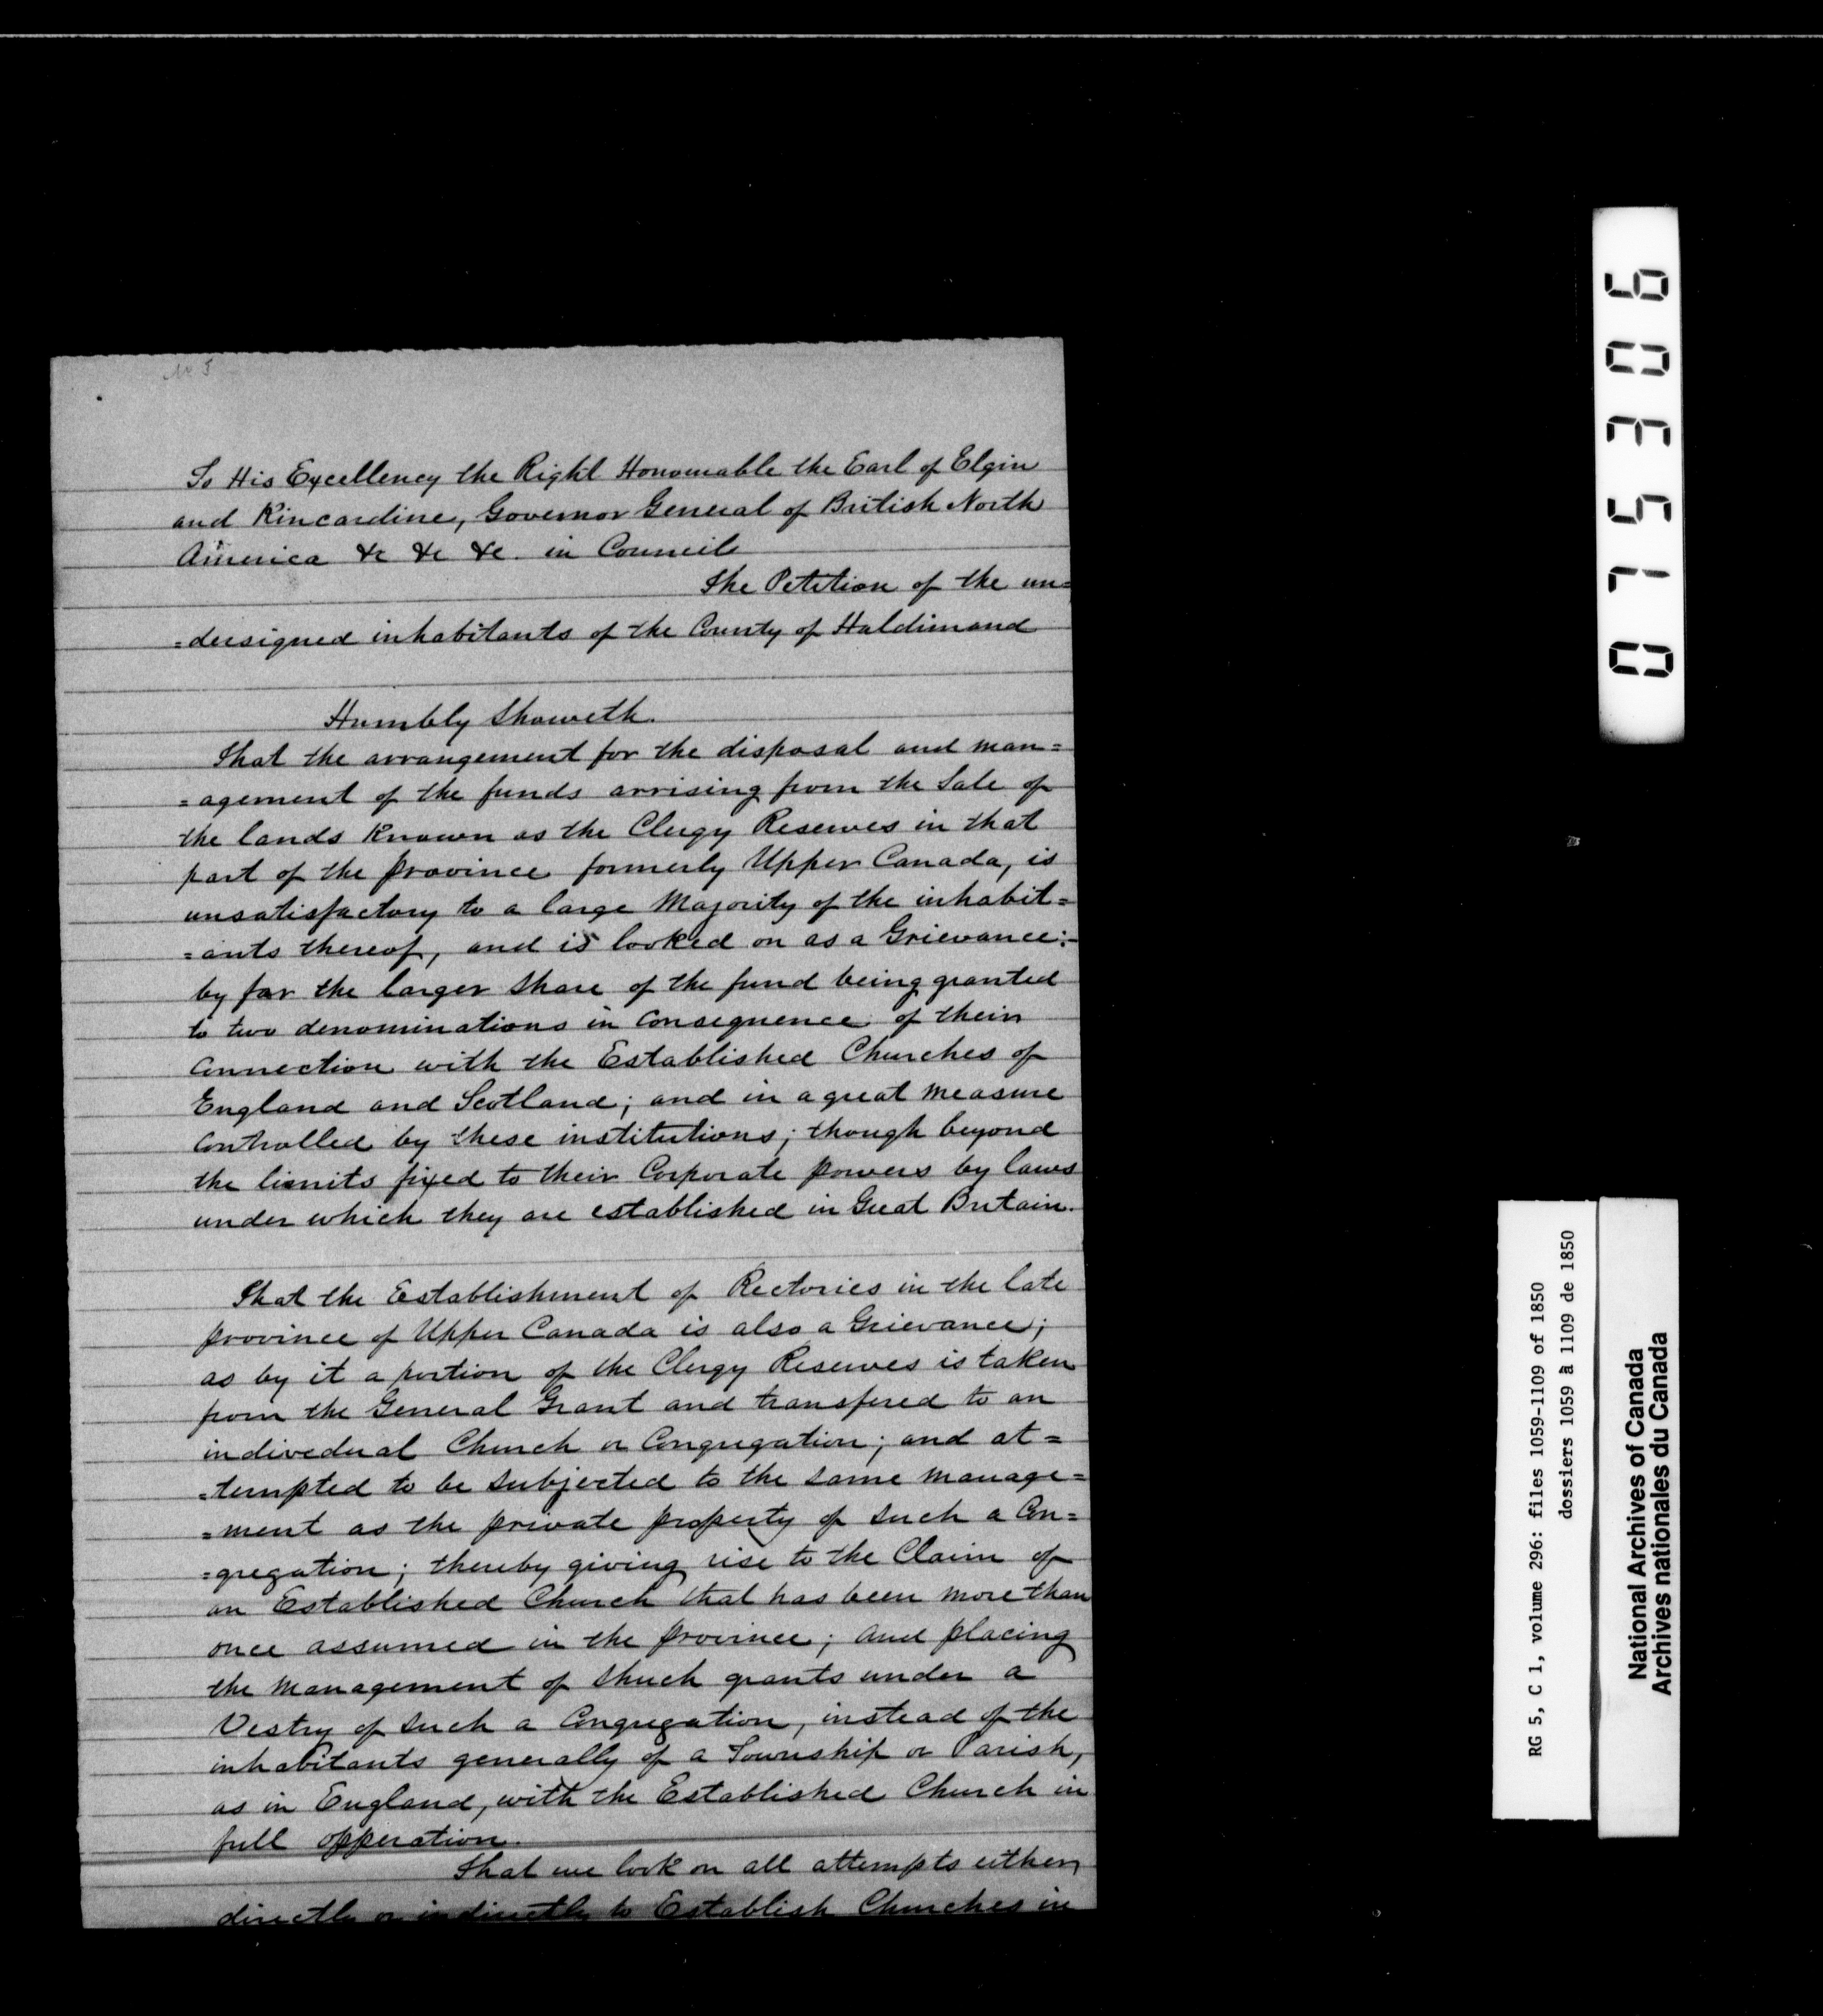 No 5
To His Excellency the Right Honourable the Earl of Elgin
and Kincardine, Governor General of British North
America &c &c &c. in Council
The Petition of the un=
=dersigned inhabitants of the County of Haldimand
Humbly Showeth.
That the arrangement for the disposal and man=
=agement of the funds arrising from the Sale of
the lands known as the Clergy Reserves in that
part of the province formerly Upper Canada, is
unsatisfactory to a large Majority of the inhabit=
=ants thereof, and is looked on as a Grievance:-
by far the larger Share of the fund being granted
to two denominations in Consequence of their
Connection with the Established Churches of
England and Scotland; and in a great Measure
Controlled by these institutions; though beyond
the limits fixed to their Corporate powers by laws
under which they are established in Great Britain.
That the Establishment of Rectories in the late
province of Upper Canada is also a Grievance;
as by it a portion of the Clergy Reserves is taken
from the General Grant and transfered to an
indivedual Church or Congregation; and at=
=tempted to be Subjected to the Same Manage=
=ment as the private property of Such a Con=
=gregation; thereby giving rise to the Claim of
an Established Church that has been more than
once assumed in the province; and placing
the Management of Shuch grants under a
Vestry of Such a Congregation, instead of the
inhabitants generally of a Township or Parish,
as in England, with the Established Church in
full opperation.
That we look on all attempts either
directly or indirectly to Establish Churches in
075306
RG 5, C 1, volume 296: files 1059-1109 of 1850
dossiers 1059 à 1109 de 1850
National Archives of Canada
Archives nationales du Canada